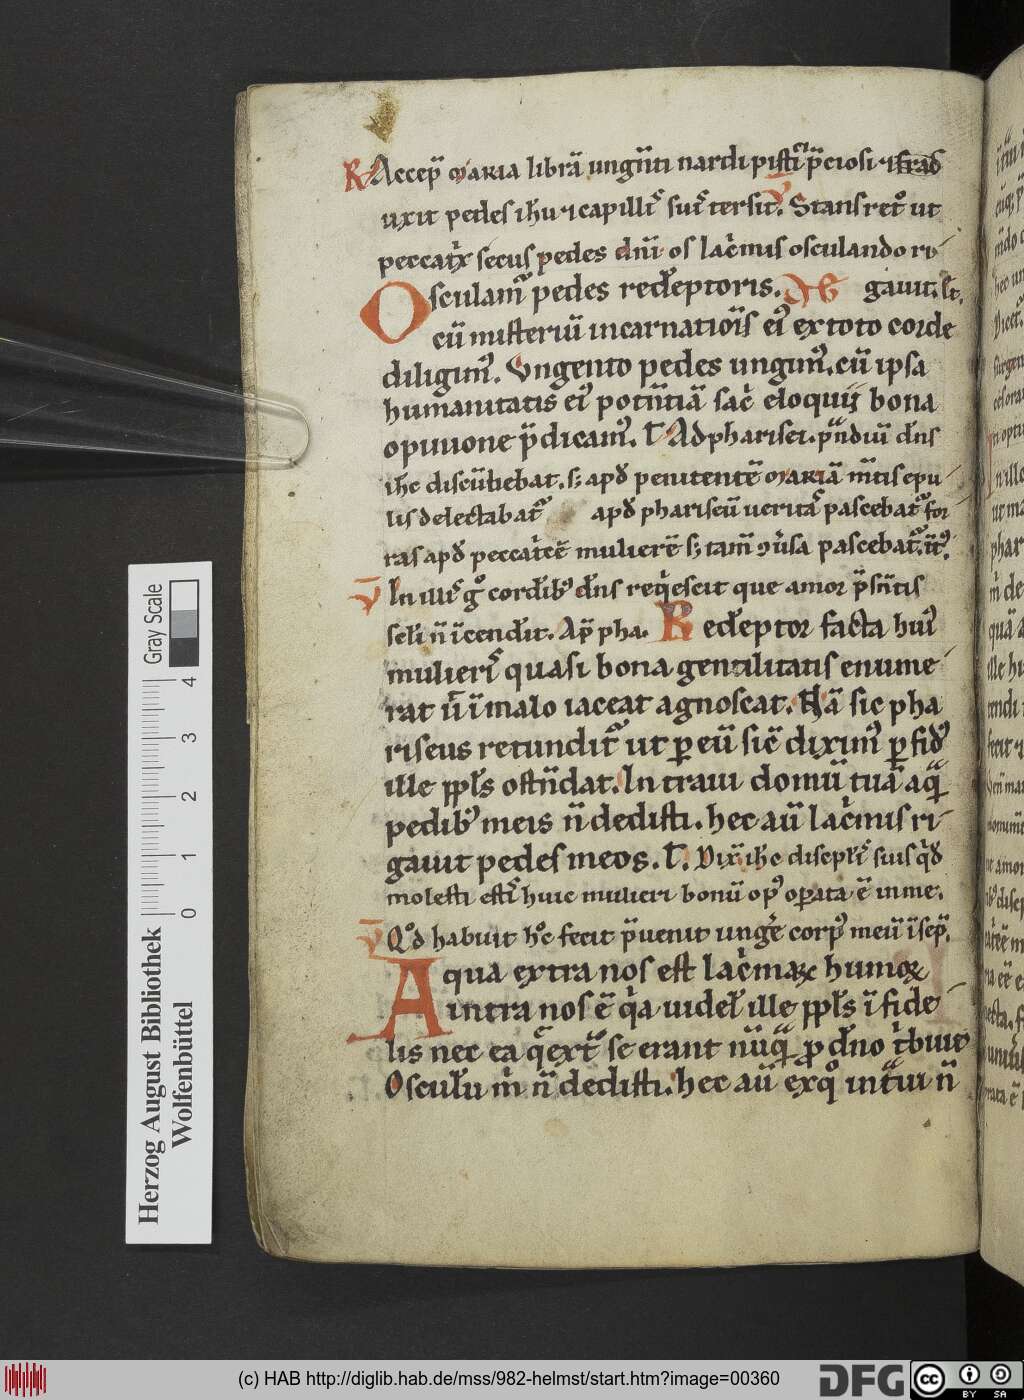 R Accep̄ maria librā ungn̄ti nardi pistīci p̄ciosi ⁊
uxit pedes ih̄u ⁊ capillis suis tersit. Stans ret͛o ut
peccat͛x secus pedes dn̄i os lac͛mis osculando ri
Osculam͛ pedes redēptoris. gauit.
cū misteriū incarnatiōis eiꝰ ex toto corde
diligimꝰ. Ungento pedes ungimꝰ. cū ipsa
humanitatis eiꝰ potn̄tiā sac͛ eloquij bona
opinione p̄dicamꝰ. Ad pharisei. dn̄s
ih̄c discūbebat. s; apđ penitentē mariā m̄tis epu
lis delectabat᷑ apđ phariseū ueritas pascebat᷑ for
ras apđ peccat͛cē mulierē s; tam̄ pascebat᷑
v̄ In illis g͛ cordibꝰ dn̄s req͛escit que amor p̄sn̄tis
scl̄i n̄ īcendit. Ap̄ pha. Redēptor facta huiꝰ
mulieris quasi bona gentilitatis enume
rat ī malo iaceat agnoscat. Nā sic pha
riseus retundit᷑ ut ꝑ eū sic̄ diximꝰ ꝑfidꝰ
ille ppl̄s ostn̄dat. In traui domū tuā aq̄
pedibꝰ meis n̄ dedisti. hec aū lac͛mis ri
gauit pedes meos. Dix̄ ih̄c discipl̄is suis q͛d
molesti estis huic mulieri bonū opꝰ oꝑata ē in me.
v̄ Qͦd habuit hͦc fecit p̄uenit unge͛ corpꝰ meū ī sep̄.
Aqua extra nos est lac͛maꝝ humor
intra nos ē q͛a uidel̄ ille ppl̄s ī fide
lis nec ea q̄ ext͛ se erant nūq̄ ꝓ dn̄o t͛buit
Osculū m͛ n̄ dedisti. hec aū exqͦ int᷑ui n̄
Gray Scale
0 1 2 3 4
Herzog August Bibliothek
Wolfenbüttel
(c) HAB http://diglib.hab.de/mss/982-helmst/start.htm?image=00360
DFG
cc BY SA